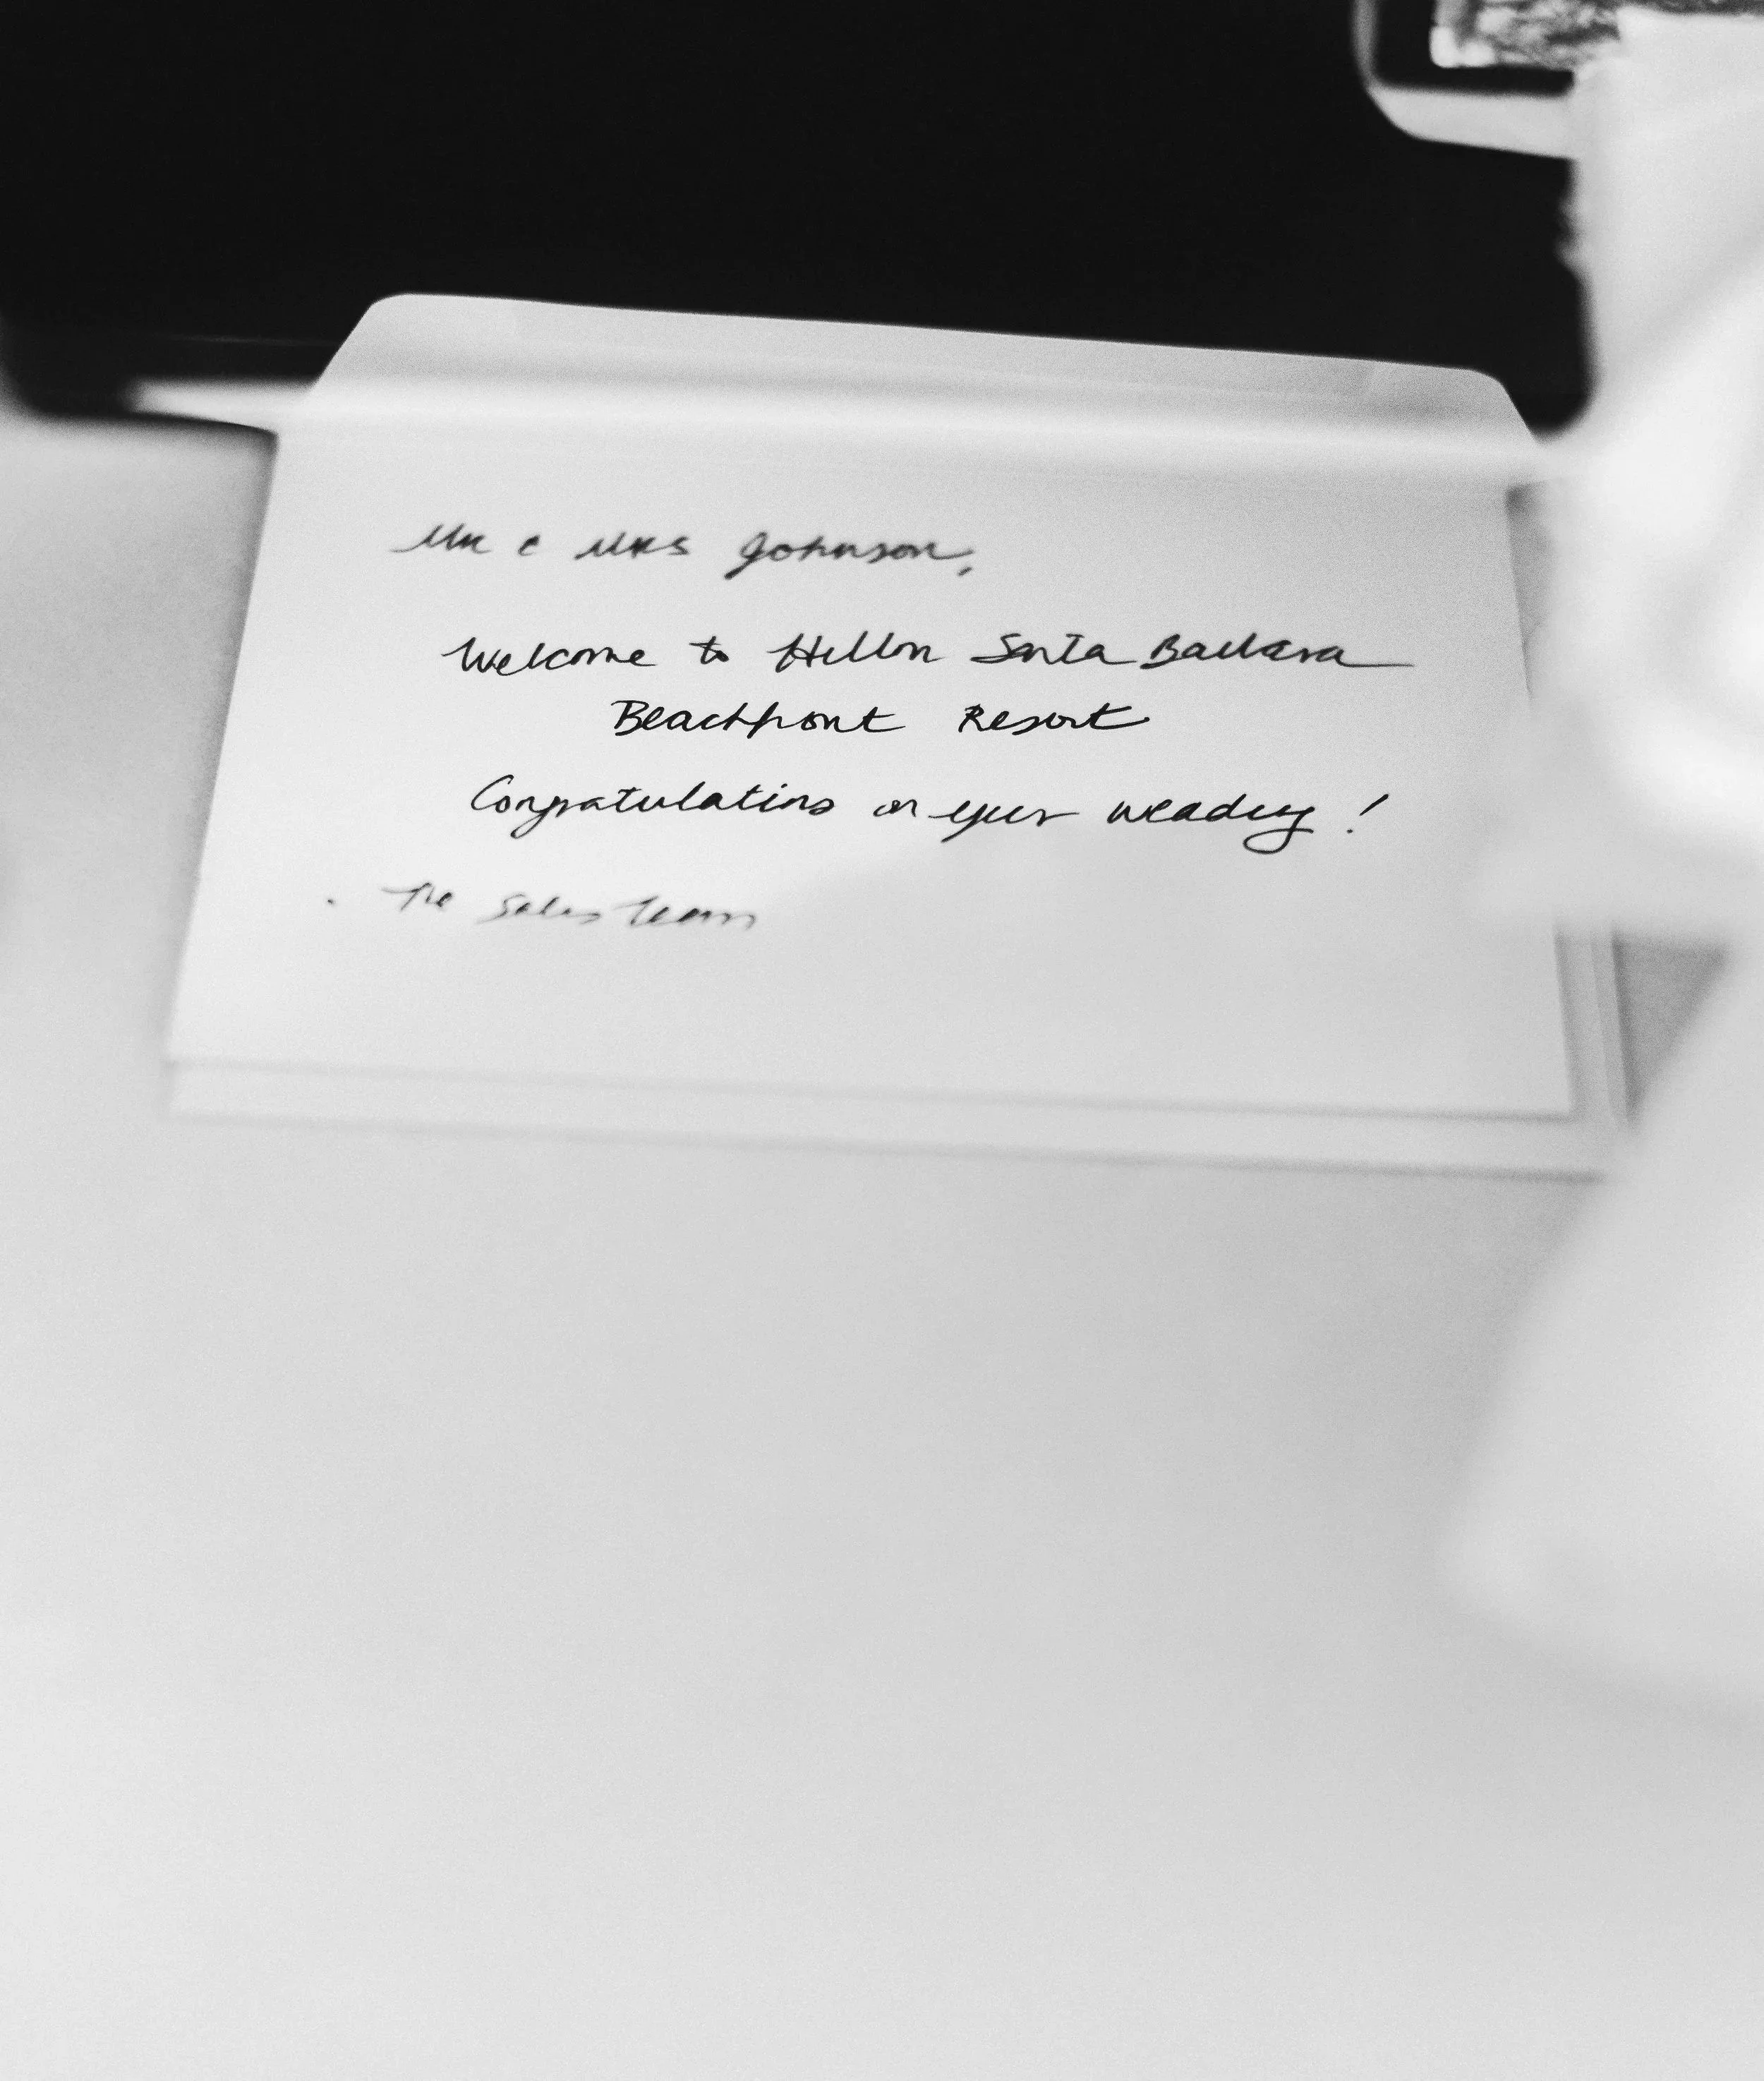 Mr & Mrs Johnson,
Welcome to Hilton Santa Barbara
Beachfront Resort
Congratulations on your wedding !
- The Sales Team